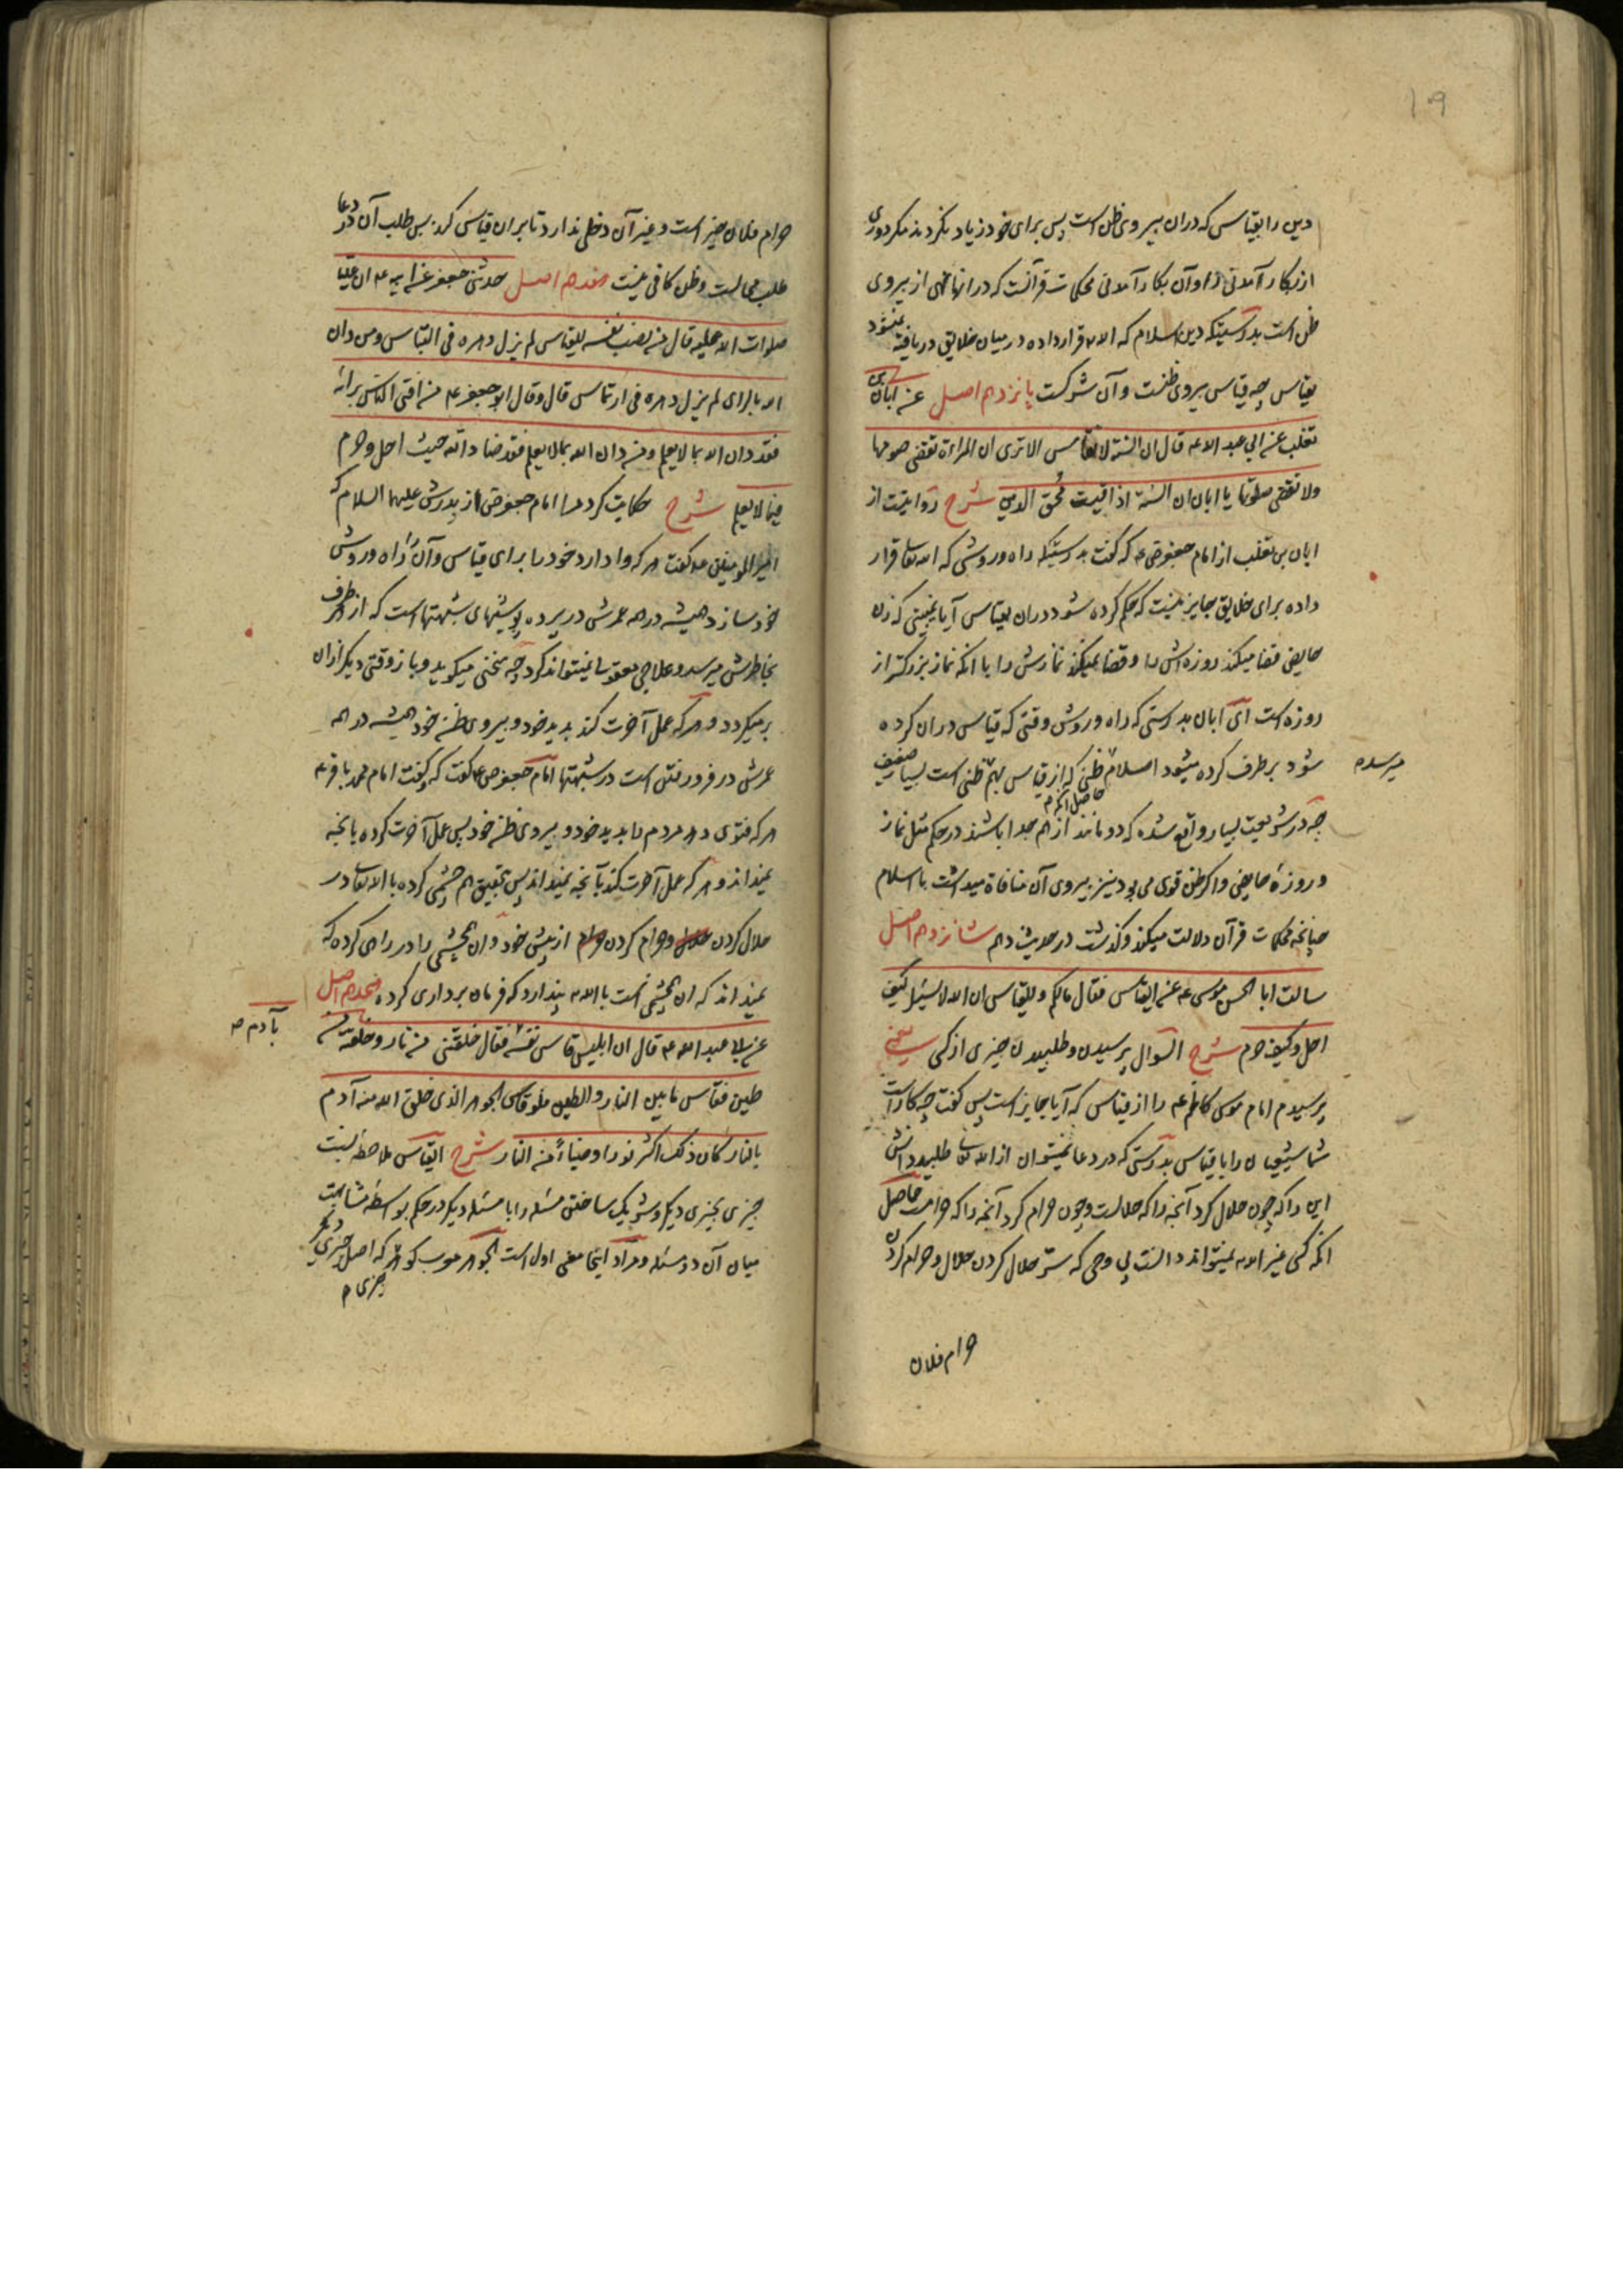 109
دین را بقیاسی که دران پیروی ظن است پس برای خود زیاد نکردند مکر دوری
از بکار آمدنی را و آن بکار آمدنی محکمات قرآنست که در انها نهی از پیروی
ظن است بدرستیکه دین اسلام که الله قرار داده در میان خلایق دریافته نمیشود
بقیاس چه قیاس پیروی ظنست و آن شرکست پانزدهم اصل عن ابان بن
تغلب عن ابی عبد الله عه قال ان السنة لا تقاس الا تری ان المراءة تقضی صومها
ولا تقضی صلوتها یا ابان ان السنة اذا قیست مُحق الدین شرح روایتست از
ابان بن تغلب از امام جعفر ص عه که گفت بدرستیکه راه و روشی که الله تعا قرار
داده برای خلایق جایز نیست که حکم کرده شود دران بقیاس آیا نمیبینی که زن
حایض قضا میکند روزه اش را و قضا نمیکند نمازش را با انکه نماز بزرکتر از
روزه است ای ابان بدرستی که راه و روش وقتی که قیاس دران کرده
شود بر طرف کرده میشود اسلام ظنی که از قیاس بهم میرسد ظنی است بسیار ضعیف
حاصل انکه م
چه در شریعت بسیار واقع شده که دو مانند از هم جدا باشند در حکم مثل نماز
و روزهٔ حایض و اکر ظن قوی می بود نیز پیروی آن منافاة میداشت با اسلام
چنانچه محکمات قرآن دلالت میکند و گذشت در حدیث دهم شانزدهم اصل
سالت ابا الحسن موسی عه عن القیاس فقال مالکم وللقیاس ان الله لا یسئل کیف
احل وکیف حرم شرح السؤال پرسیدن و طلبیدن چیزی از کسی یعنی
پرسیدم امام موسی کاظم عه را از قیاس که آیا جایز است پس گفت چه کار است
شما شیعیان را با قیاس بدرستی که در دعا نمیتوان از الله تعا طلبید دانش
این را که چون حلال کرد آنچه را که حلالست و چون حرام کرد آنچه را که حرامست حاصل
انکه کسی غیر الله نمیتواند دانست بی وحی که سرّ حلال کردن حلال و حرام کردن
حرام فلان
حرام فلان چیز است و غیر آن دخلی ندارد تا بران قیاس کند پس طلب آن در دعا
طلب محالست و ظن کافی نیست هفدهم اصل حدثنی جعفر عن ابیه عه ان علیا
صلوات الله علیه قال من نصب نفسه للقیاس لم یزل دهره فی التباس ومن دان
الله بالرای لم یزل دهره فی ارتماس قال وقال ابو جعفر عه من افتی الناس برایه
فقد دان الله بما لا یعلم ومن دان الله بما لا یعلم فقد ضاد الله حیث احل وحرم
فیما لا یعلم شرح حکایت کرد مرا امام جعفر ص از پدرش علیهما السلام که
امیر المومنین عه گفت هر که وا دارد خود را برای قیاس و آن را راه و روش
خود سازد همیشه در همه عمرش در پرده پوشیهای شبهتهاست که از هر طرف
بخاطرش میرسد و علاجی معقول نمیتواند کرد چه سخنی میکوید و باز وقتی دیکر ازان
برمیکردد و هر که عمل آخرت کند بدید خود و پیروی ظن خود همیشه در همه
عمرش در فرو رفتن است در شبهتها امام جعفر ص عه گفت که گفت امام محمد باقر عه
هر که فتوی دهد مردم را بدید خود و پیروی ظن خود پس عمل آخرت کرده بانچه
نمیداند و هر که عمل آخرت کند بآنچه نمیداند پس بتحقیق هم چشمی کرده با الله تعا در
حلال کردن و حرام کردن از پیش خود و ان همچشمی را در راهی کرده که
نمیداند که ان همچشمی است با الله پندارد که فرمان برداری کرده هجدهم اصل
عن ابی عبد الله عه قال ان ابلیس قاس نفسه بآدم فقال خلقتنی من نار وخلقته من
طین فقاس ما بین النار والطین فلو قاس الجوهر الذی خلق الله منه آدم
بالنار کان ذلک اکثر نورا وضیاءً من النار شرح القیاس ملاحظهٔ نسبت
چیزی بچیزی دیکر و شریک ساختن مسئله را با مسئله دیکر در حکم بواسطه مشابهت
میان آن دو مسئله و مراد اینجا معنی اول است الجوهر معرب کوهر که اصل چیزی
چیزی م